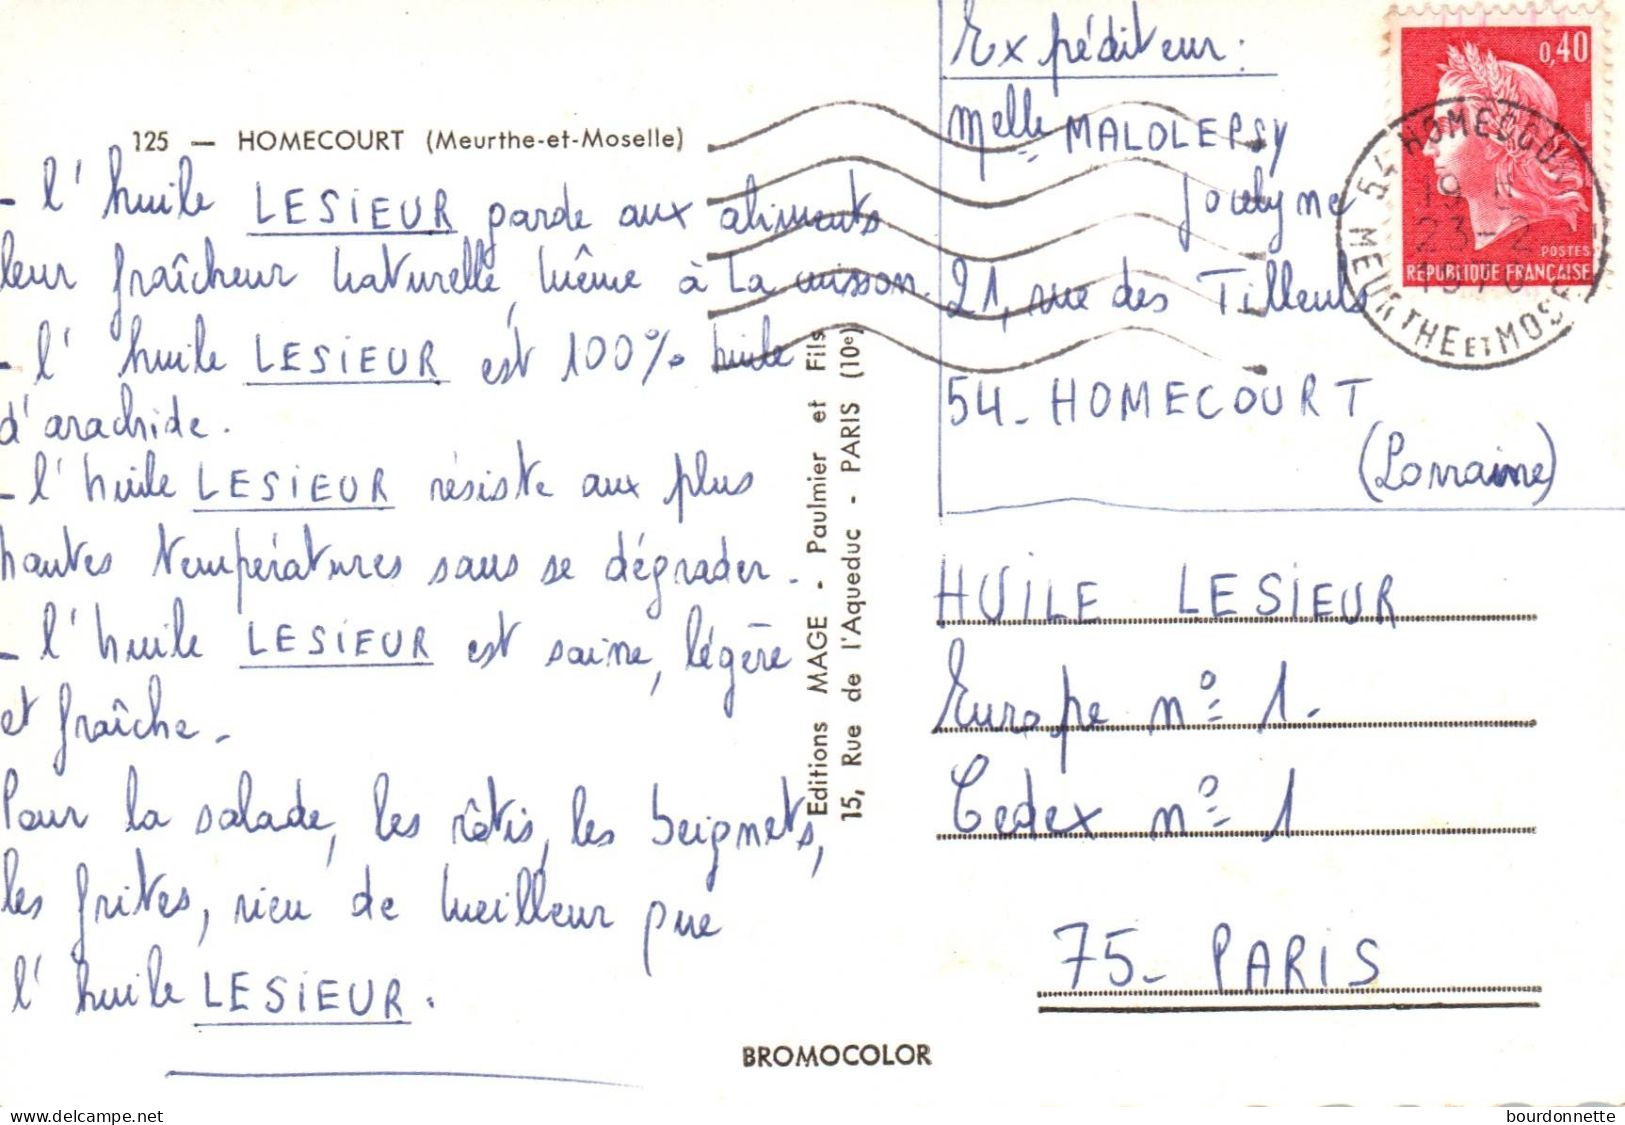 125 — HOMECOURT (Meurthe-et-Moselle)
- l'huile LESIEUR garde aux aliments
leur fraîcheur naturelle, même à la cuisson.
- l'huile LESIEUR est 100% huile
d'arachide.
- l'huile LESIEUR résiste aux plus
hautes températures sans se dégrader.
- l'huile LESIEUR est saine, légère
et fraîche.
Pour la salade, les rôtis, les beignets,
les frites, rien de meilleur que
l'huile LESIEUR.
Editions MAGE - Paulmier et Fils
15, Rue de l'Aqueduc - PARIS (10e)
BROMOCOLOR
Expéditeur :
Melle MALOLEPSY
Jocelyne
21, rue des Tilleuls
54 - HOMECOURT
(Lorraine)
0,40
POSTES
REPUBLIQUE FRANÇAISE
54 HOMECOURT
19 H
23-2
1970
MEURTHE ET MOSELLE
HUILE LESIEUR
Europe n° 1.
Cedex n° 1
75 - PARIS
bourdonnette